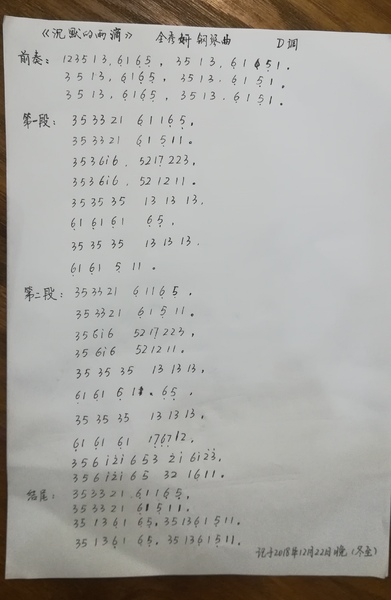 《沉默的雨滴》 全秀妍 钢琴曲 D调
前奏: 123513.6165, 3513.6151.
3513,6165, 3513.6151,
3513.6165, 3513.6151.
第一段: 353321 61165,
353321 61511.
353616. 5217223,
353616. 521211.
353535 131313.
616161 65,
353535 131313.
6161 511.
第二段: 353321 61165,
353321 61511,
35616 5217223,
35616 521211.
353535 131313,
6161611. 65,
353535 131313,
616161 176712,
3561216532161623,
35612165321611.
结尾: 353321.61165,
353321 61511,
35136165,351361511,
35136165,351361511,
记于2018年12月22日晚(冬至)